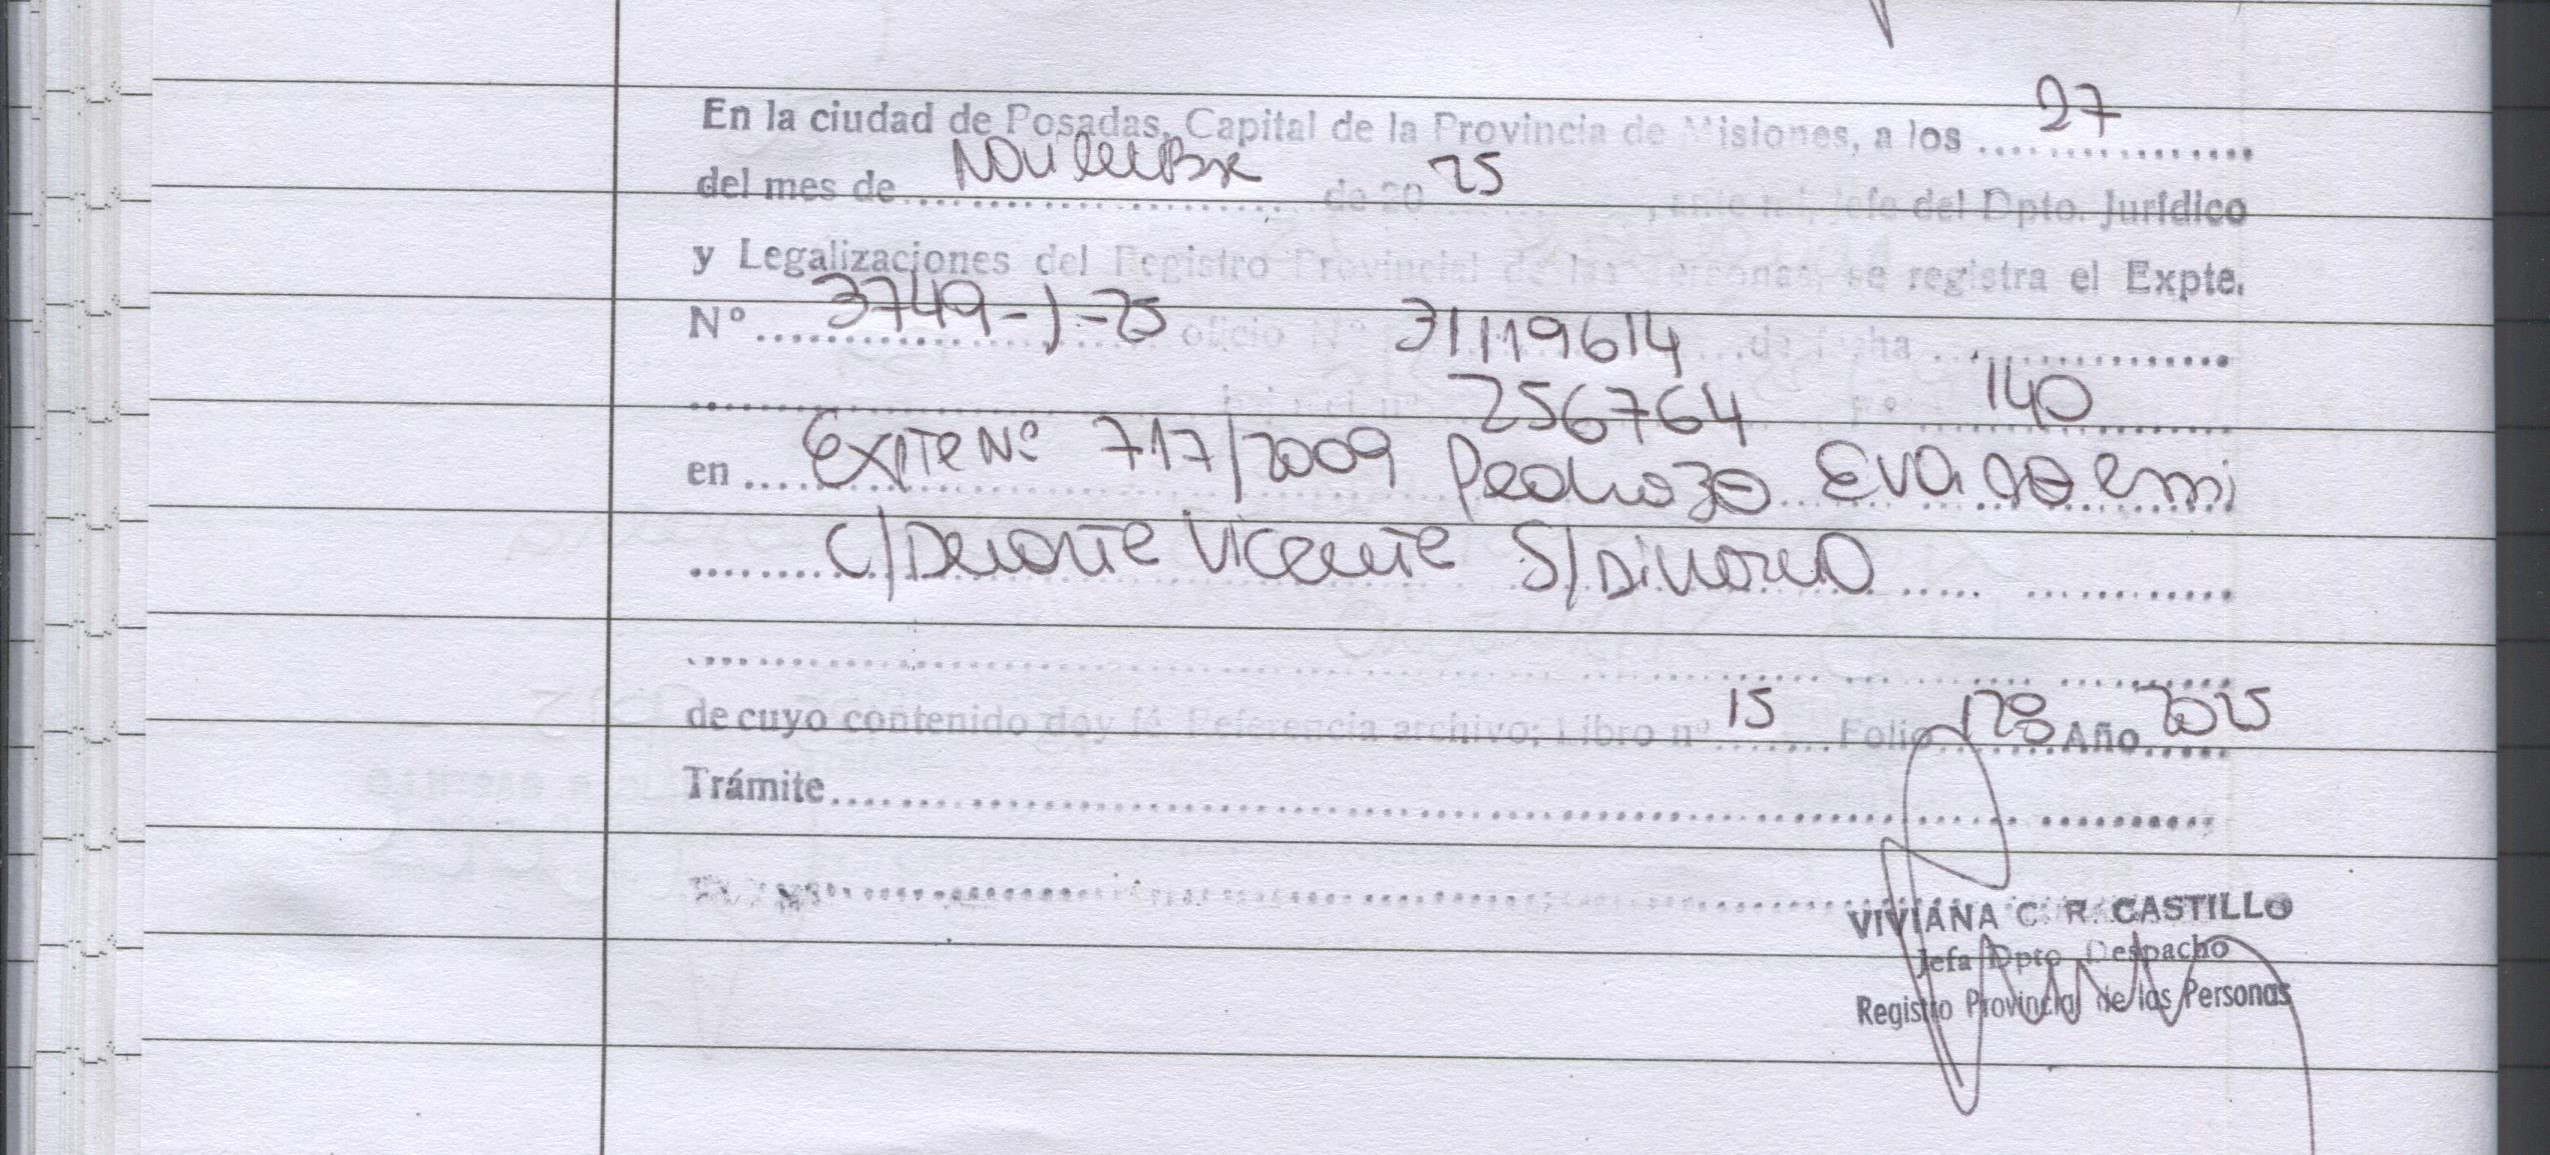 En la ciudad de Posadas, Capital de la Provincia de Misiones, a los 27
del mes de Noviembre de 20 25, ante mi, Jefe del Dpto. Jurídico
y Legalizaciones del Registro Provincial de las Personas, se registra el Expte.
Nº 3749-J-25 oficio Nº 31119614 de fecha
256764 140
en Expte Nº 717/2009 Pedrozo Eva Noemi
C/ Duarte Vicente S/ Divorcio
de cuyo contenido doy fé. Referencia archivo: Libro nº 15 Folio 128 Año 2025
Trámite
VIVIANA C. R. CASTILLO
Jefa Dpto Despacho
Registro Provincial de las Personas